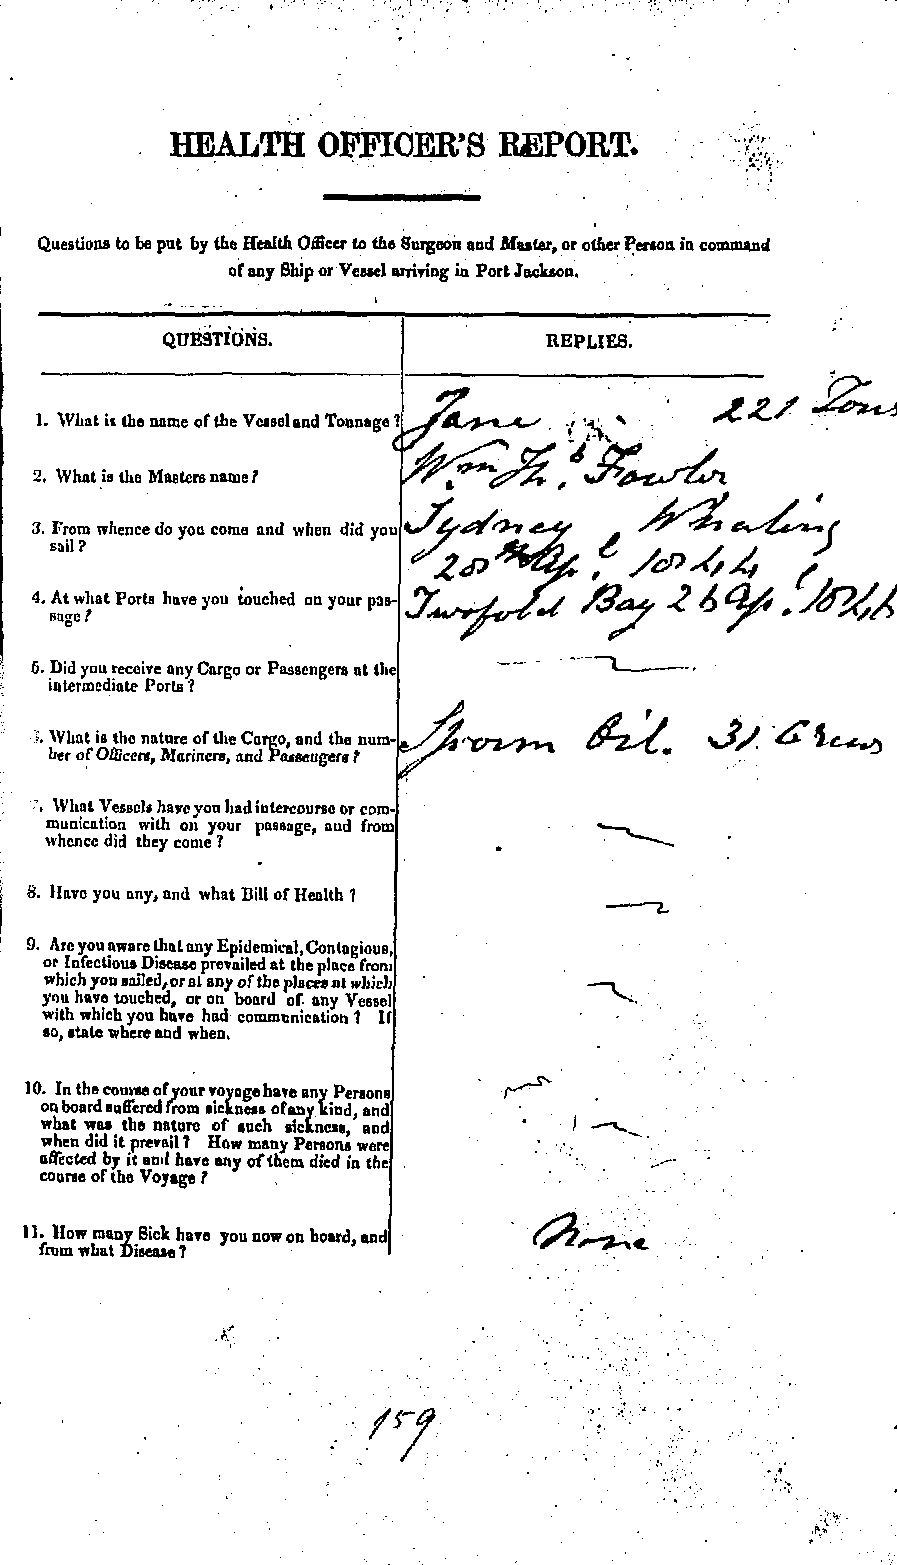 HEALTH OFFICER'S REPORT.
Questions to be put by the Health Officer to the Surgeon and Master, or other Person in command
of any Ship or Vessel arriving in Port Jackson.
QUESTIONS. REPLIES.
1. What is the name of the Vessel and Tonnage? Jane 221 Tons
2. What is the Masters name? Wm Ths. Fowler
3. From whence do you come and when did you Sydney, Whaling
sail? 28th Apl. 1844
4. At what Ports have you touched on your pas- Twofold Bay 26 Apl. 1846
sage?
5. Did you receive any Cargo or Passengers at the
intermediate Ports?
6. What is the nature of the Cargo, and the num- Sperm Oil. 31 Crew
ber of Officers, Mariners, and Passengers?
7. What Vessels have you had intercourse or com-
munication with on your passage, and from
whence did they come?
8. Have you any, and what Bill of Health?
9. Are you aware that any Epidemical, Contagious,
or Infectious Disease prevailed at the place from
which you sailed, or at any of the places at which
you have touched, or on board of any Vessel
with which you have had communication? If
so, state where and when.
10. In the course of your voyage have any Persons
on board suffered from sickness of any kind, and
what was the nature of such sickness, and
when did it prevail? How many Persons were
affected by it and have any of them died in the
course of the Voyage?
11. How many Sick have you now on board, and None
from what Disease?
159